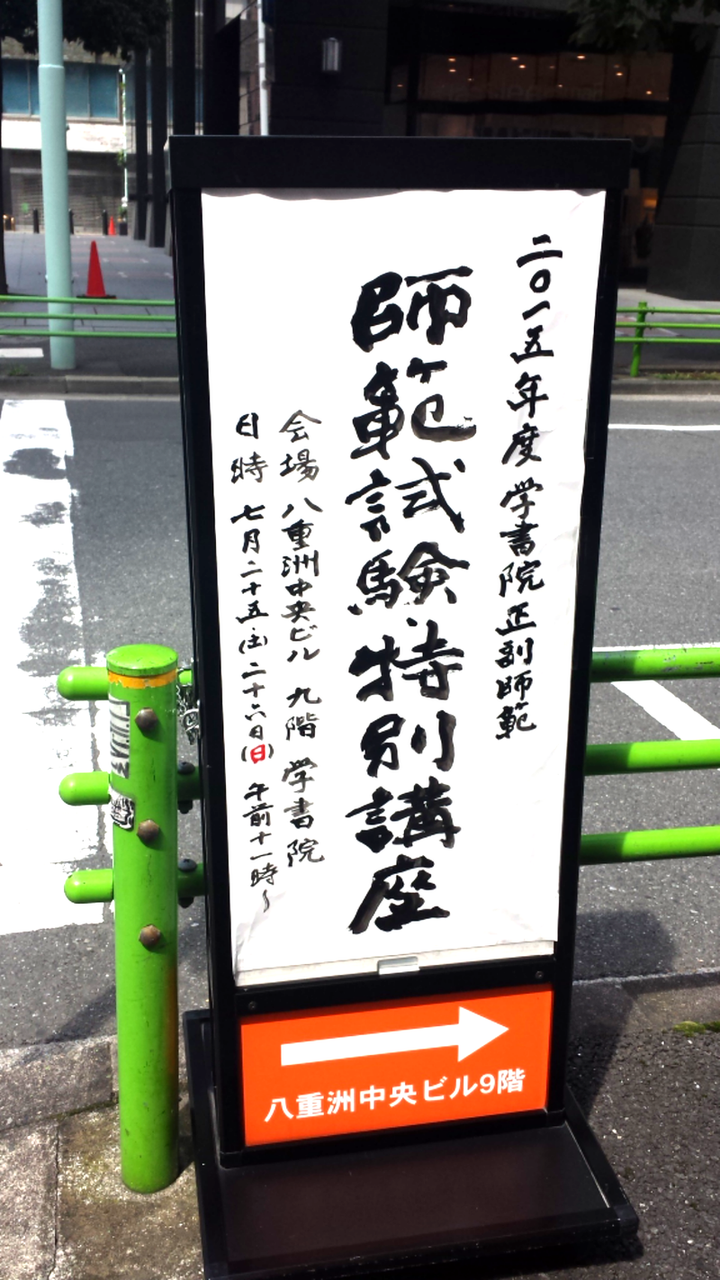 二〇一五年度学書院正副師範
師範試験特別講座
会場 八重洲中央ビル 九階 学書院
日時 七月二十五(土)二十六日(日) 午前十一時〜
八重洲中央ビル9階